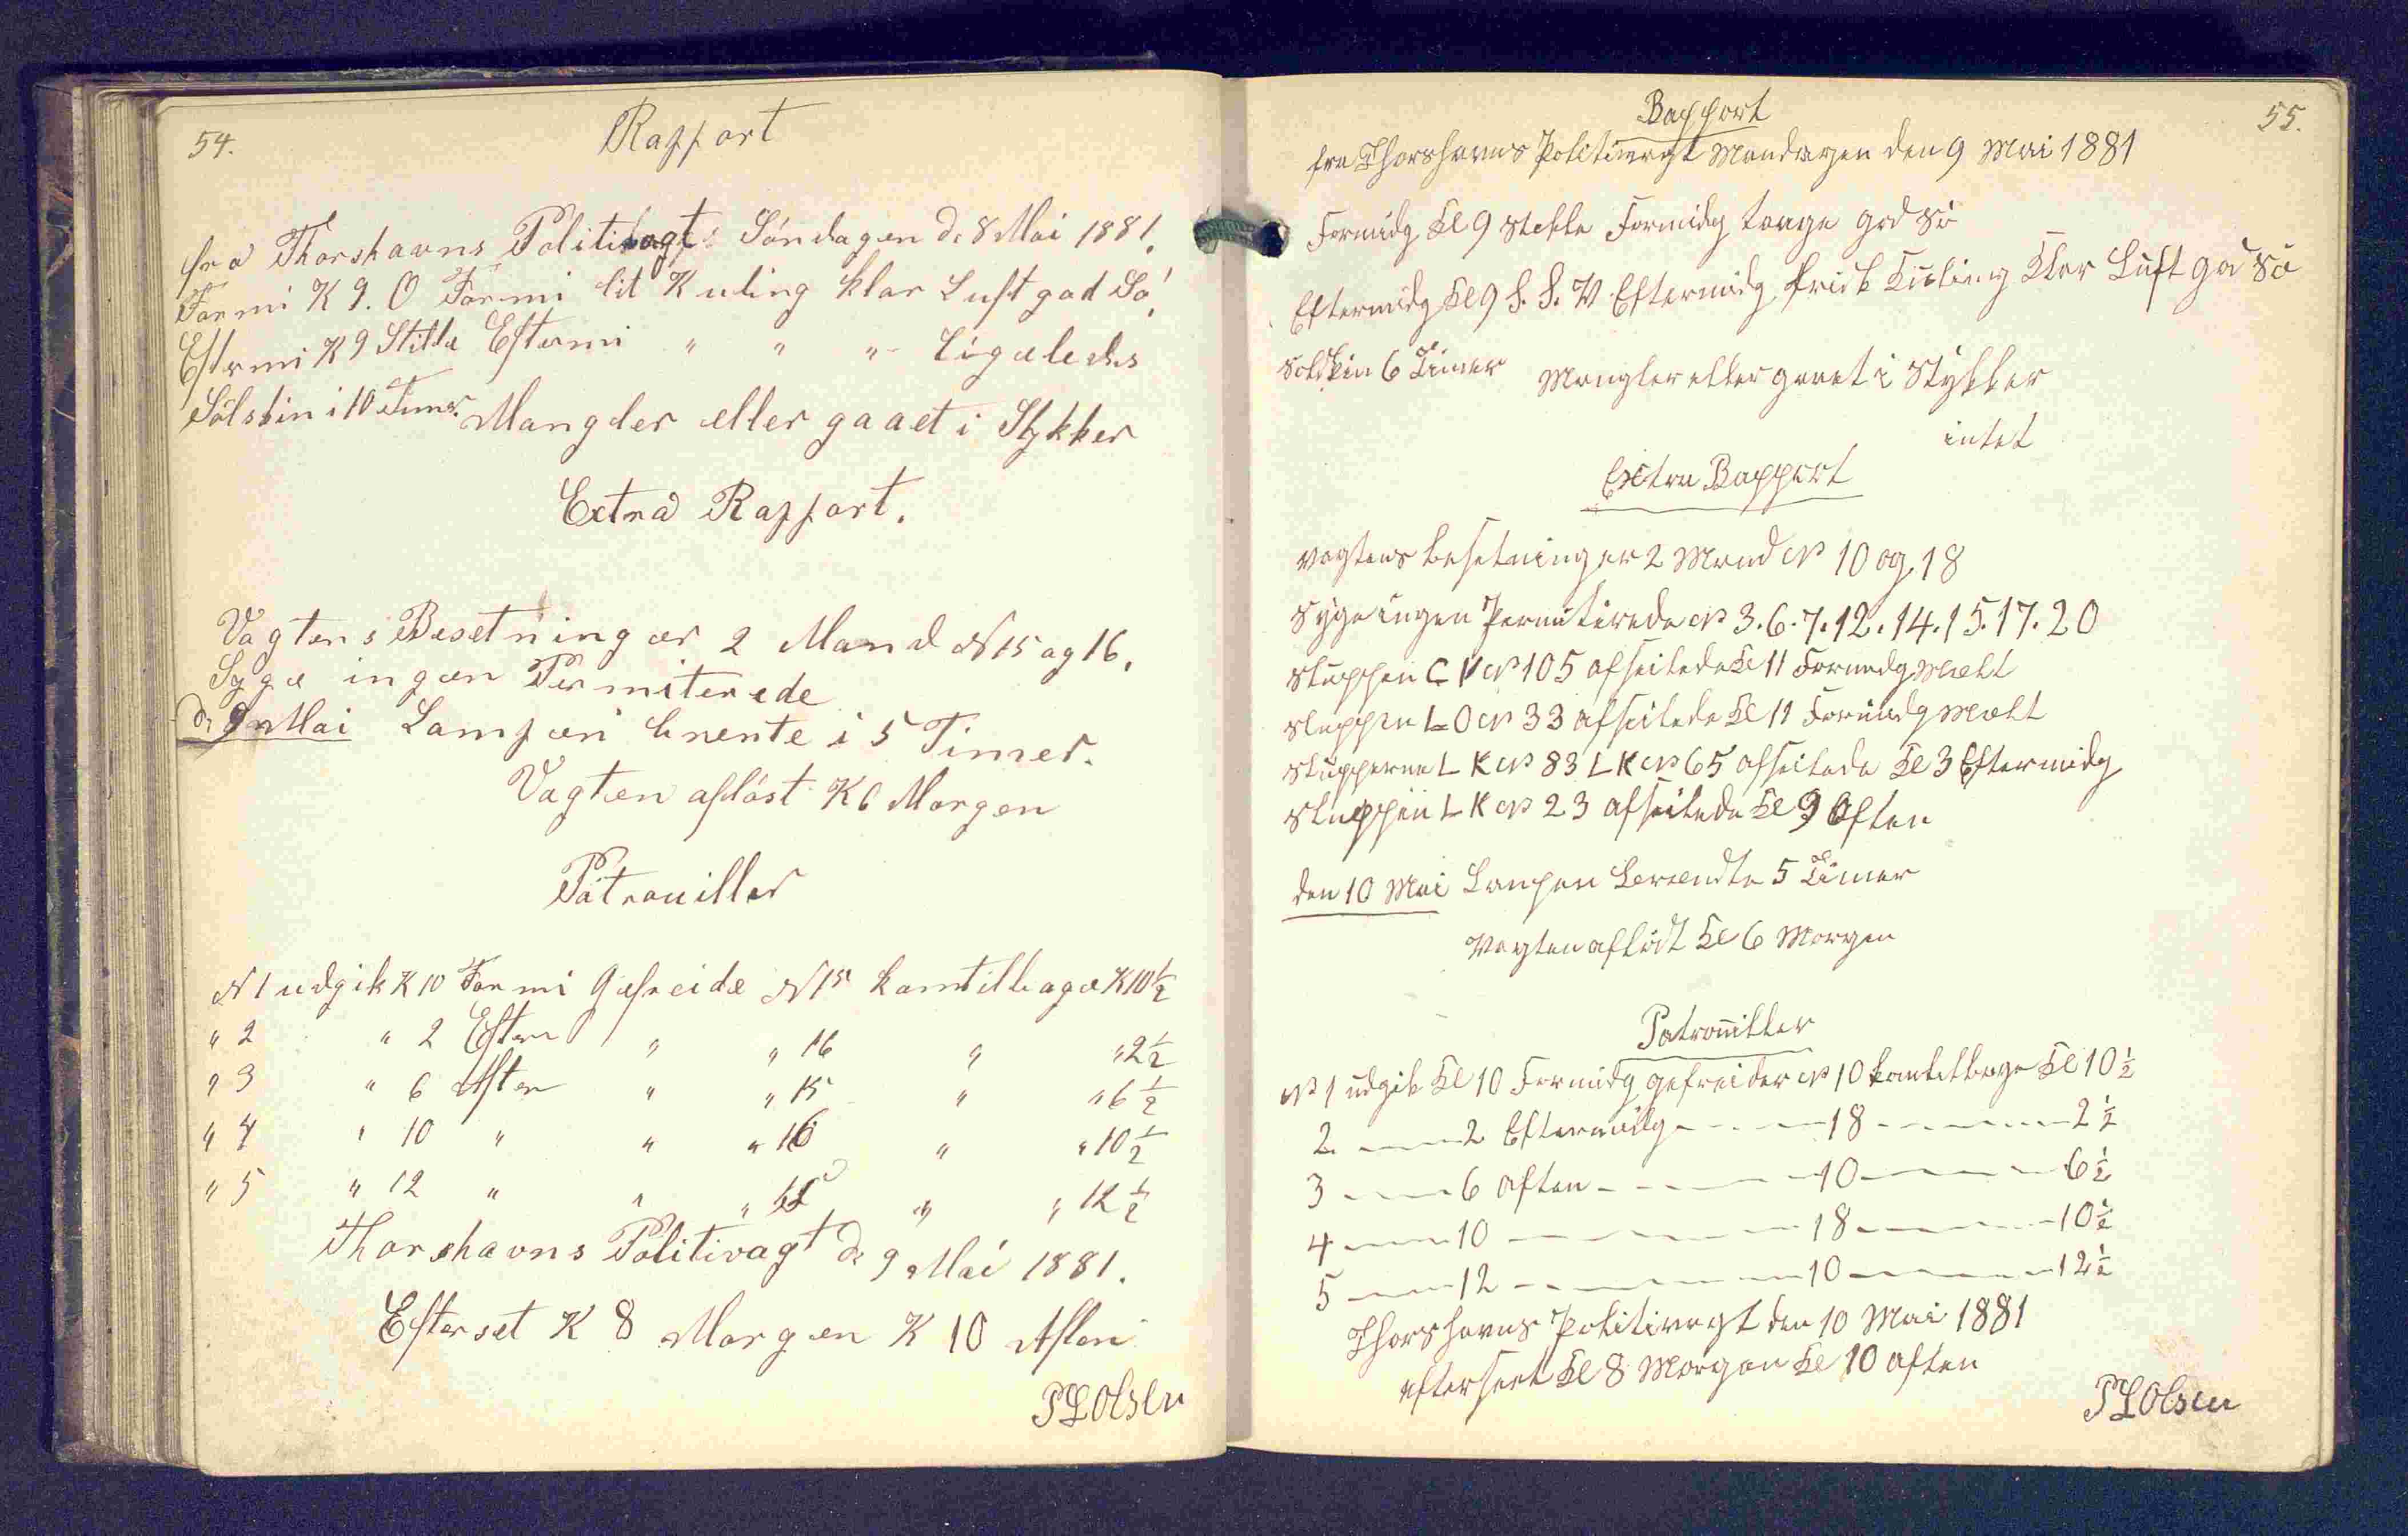 54.
Rapport
fra Thorshavns Politivagt Söndagen d. 8 Mai 1881.
Formi K 9. O Formi lit Kuling klar Luft god Sö
Eftermi K 9 Stille Eftermi " " " Ligeledes
Sölskin i 10 Timer. Mangler eller gaaet i Stykker
Extra Rapport.
Vagtens Besetning er 2 Mand N 15 og 16.
Syge ingen Permiterede
d. 9 Mai Lampen brente i 5 Timer.
Vagten aflöst K 6 Morgen
Patrouiller
N 1 udgik K 10 Formi Gefreide N 15 kom tilbage K 10 1/2
" 2 " 2 Efterm " " 16 " " 2 1/2
" 3 " 6 Aften " " 15 " " 6 1/2
" 4 " 10 " " " 16 " " 10 1/2
" 5 " 12 " " " 15 " " 12 1/2
Thorshavns Politivagt d. 9 Mai 1881.
Efterset K 8 Morgen K 10 Aften
PLOlsen
55.
Rapport
fra Thorshavns Politivagt Mandagen den 9 Mai 1881
Formidg Kl 9 Stelle Formidg taage god Sö
Eftermidg Kl 9 S. S. V Eftermidg frisk Kuling Klar Luft god Sö
Solskin 6 Timer Mangler eller gaaet i Stykker
intet
Extra Rapport
Vagtens besetning er 2 Mand N 10 og 18
Syge ingen Permiterede N 3. 6. 7. 12. 14. 15. 17. 20
Sluppen C V N 105 afseilede Kl 11 Formidg
Sluppen L O N 33 afseilede Kl 11 Formidg
Slupperne L K N 83 L K N 65 afseilede Kl 3 Eftermidg
Sluppen L K N 23 afseilede Kl 9 Aften
den 10 Mai Lampen brændte 5 Timer
Vagten aflöst Kl 6 Morgen
Patrouiller
N 1 udgik Kl 10 Formidg gefreider N 10 kom tilbage Kl 10 1/2
2 — 2 Eftermidg — 18 — 2 1/2
3 — 6 Aften — 10 — 6 1/2
4 — 10 — 18 — 10 1/2
5 — 12 — 10 — 12 1/2
Thorshavns Politivagt den 10 Mai 1881
efterseet Kl 8 Morgen Kl 10 aften
PLOlsen